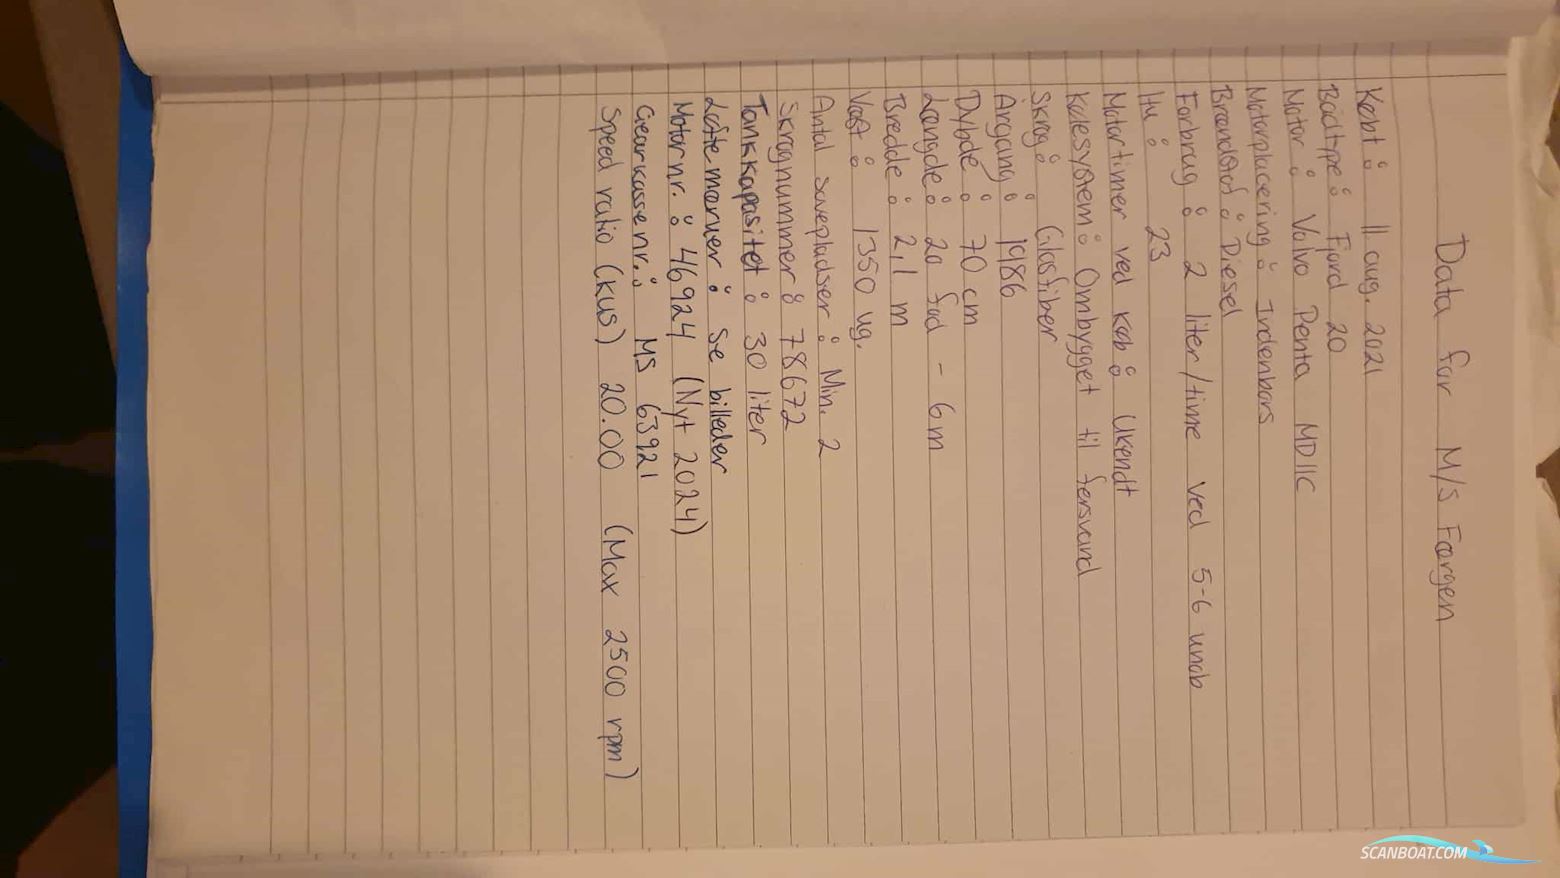 Data for M/S Færgen
Købt: 11 aug. 2021
Bådtype: Fjord 20
Motor: Volvo Penta MD11C
Motorplacering: Indenbors
Brændstof: Diesel
Forbrug: 2 liter/time ved 5-6 knob
Hk: 23
Motortimer ved køb: Ukendt
Kølesystem: Ombygget til fersvand
Skrog: Glasfiber
Årgang: 1986
Dybde: 70 cm
Længde: 20 fod - 6m
Bredde: 2,1 m
Vægt: 1350 kg.
Antal sovepladser: Min. 2
Skrognummer: 78672
Tankkapasitet: 30 liter
Løfte mærker: Se billeder
Motornr.: 46924 (Nyt 2024)
Gearkasse nr.: MS 63921
Speed ratio (KUS) 20.00 (Max 2500 rpm)
SCANBOAT.COM